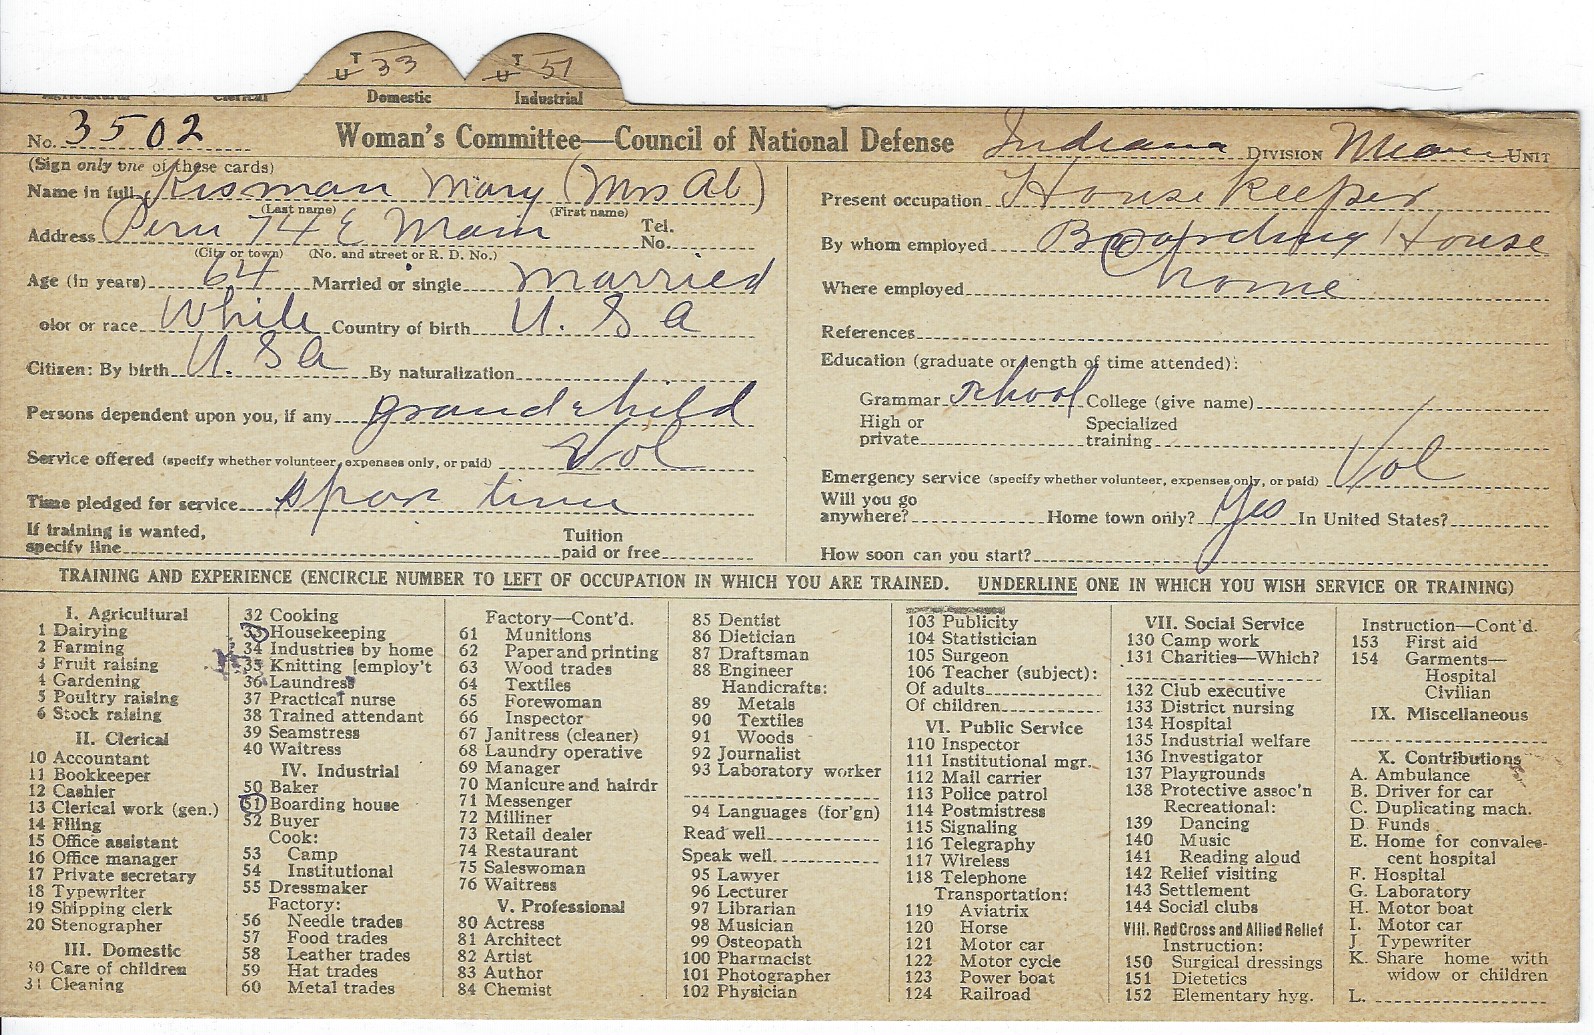 T U 33 T U 51
Domestic Industrial
No. 3502 Woman's Committee—Council of National Defense Indiana DIVISION UNIT
(Sign only one of these cards)
Name in full Kisman Mary (Mrs Ab)
(Last name) (First name)
Address Peru 74 E Main Tel. No.
(City or town) (No. and street or R. D. No.)
Age (in years) 64 Married or single married
olor or race White Country of birth U. S a
Citizen: By birth U. S a By naturalization
Persons dependent upon you, if any grandchild
Service offered (specify whether volunteer, expenses only, or paid) Vol
Time pledged for service spar time
If training is wanted, specify line Tuition paid or free
Present occupation House keeper
By whom employed Boarding House
Where employed home
References
Education (graduate or length of time attended):
Grammar school College (give name)
High or private Specialized training
Emergency service (specify whether volunteer, expenses only, or paid) Vol
Will you go anywhere? Home town only? Yes In United States?
How soon can you start?
TRAINING AND EXPERIENCE (ENCIRCLE NUMBER TO LEFT OF OCCUPATION IN WHICH YOU ARE TRAINED. UNDERLINE ONE IN WHICH YOU WISH SERVICE OR TRAINING)
I. Agricultural
1 Dairying
2 Farming
3 Fruit raising
4 Gardening
5 Poultry raising
6 Stock raising
II. Clerical
10 Accountant
11 Bookkeeper
12 Cashier
13 Clerical work (gen.)
14 Filing
15 Office assistant
16 Office manager
17 Private secretary
18 Typewriter
19 Shipping clerk
20 Stenographer
III. Domestic
30 Care of children
31 Cleaning
32 Cooking
33 Housekeeping
34 Industries by home
35 Knitting [employ't
36 Laundress
37 Practical nurse
38 Trained attendant
39 Seamstress
40 Waitress
IV. Industrial
50 Baker
51 Boarding house
52 Buyer
Cook:
53 Camp
54 Institutional
55 Dressmaker
Factory:
56 Needle trades
57 Food trades
58 Leather trades
59 Hat trades
60 Metal trades
Factory—Cont'd.
61 Munitions
62 Paper and printing
63 Wood trades
64 Textiles
65 Forewoman
66 Inspector
67 Janitress (cleaner)
68 Laundry operative
69 Manager
70 Manicure and hairdr
71 Messenger
72 Milliner
73 Retail dealer
74 Restaurant
75 Saleswoman
76 Waitress
V. Professional
80 Actress
81 Architect
82 Artist
83 Author
84 Chemist
85 Dentist
86 Dietician
87 Draftsman
88 Engineer
Handicrafts:
89 Metals
90 Textiles
91 Woods
92 Journalist
93 Laboratory worker
94 Languages (for'gn)
Read well
Speak well
95 Lawyer
96 Lecturer
97 Librarian
98 Musician
99 Osteopath
100 Pharmacist
101 Photographer
102 Physician
103 Publicity
104 Statistician
105 Surgeon
106 Teacher (subject):
Of adults
Of children
VI. Public Service
110 Inspector
111 Institutional mgr.
112 Mail carrier
113 Police patrol
114 Postmistress
115 Signaling
116 Telegraphy
117 Wireless
118 Telephone
Transportation:
119 Aviatrix
120 Horse
121 Motor car
122 Motor cycle
123 Power boat
124 Railroad
VII. Social Service
130 Camp work
131 Charities—Which?
132 Club executive
133 District nursing
134 Hospital
135 Industrial welfare
136 Investigator
137 Playgrounds
138 Protective assoc'n
Recreational:
139 Dancing
140 Music
141 Reading aloud
142 Relief visiting
143 Settlement
144 Social clubs
VIII. Red Cross and Allied Relief
Instruction:
150 Surgical dressings
151 Dietetics
152 Elementary hyg.
Instruction—Cont'd.
153 First aid
154 Garments—
Hospital
Civilian
IX. Miscellaneous
X. Contributions
A. Ambulance
B. Driver for car
C. Duplicating mach.
D Funds
E. Home for convales-
cent hospital
F. Hospital
G. Laboratory
H. Motor boat
I. Motor car
J Typewriter
K. Share home with
widow or children
L.